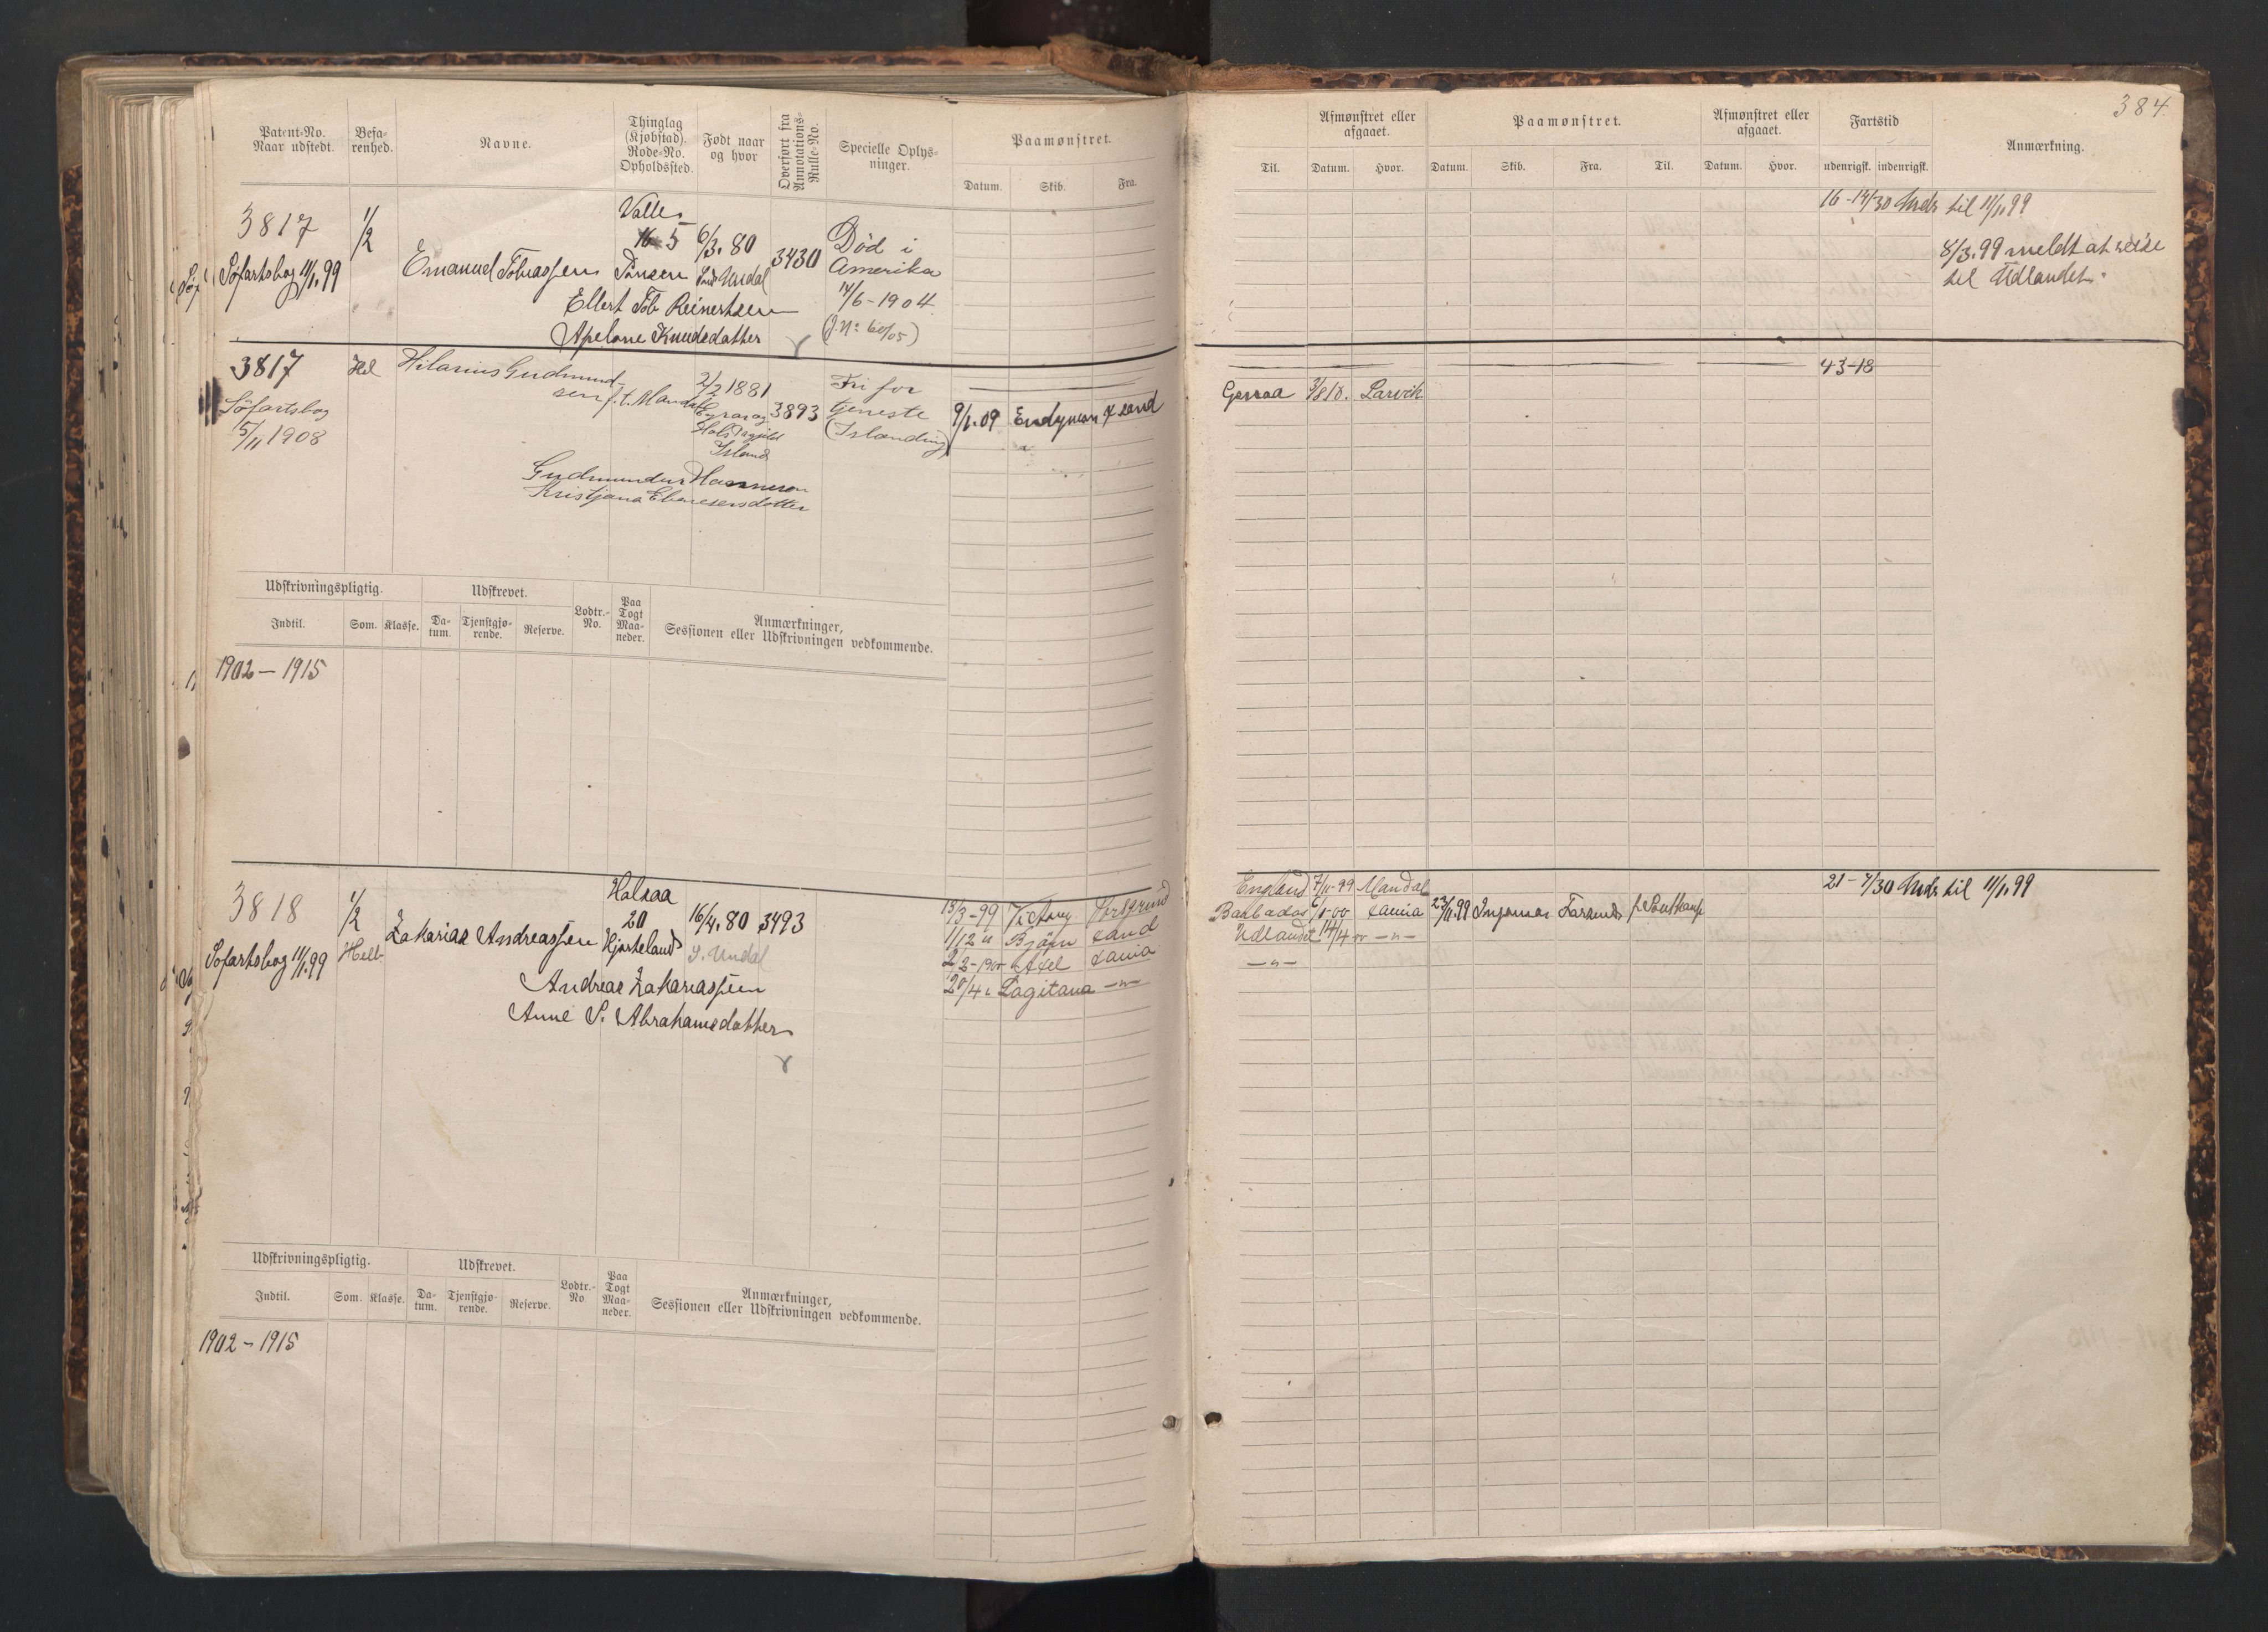 384.
Patent-No. Naar udstedt.
Befarenhed.
Navne.
Thinglag (Kjøbstad). Rode-No. Opholdssted.
Født naar og hvor
Overført fra Annotations-Rulle-No.
Specielle Oplysninger.
Paamønstret.
Datum. Skib. Fra.
Til.
Afmønstret eller afgaaet.
Datum. Hvor.
Paamønstret.
Datum. Skib. Fra. Til.
Afmønstret eller afgaaet.
Datum. Hvor.
Fartstid
udenrigsk. indenrigsk.
Anmærkning.
3817 1/2
Søfartsbog 11/1.99
Emanuel Tobiassen
Valle
5
6/3.80
Undal
3430
Død i
Amerika
14/6-1904
(J.N: 60/05)
Ellert Tob. Reinertsen
Apelone Knudsdatter
16-14/30 Mdr til 11/1.99
8/3.99 meldt at reise
til Udlandet.
3817 Hel
Søfartsbog
5/11 1908
Hilarius Gudmund-
sen f.t. Mandal
2/2 1881
Island
3893
Fri for
tjeneste
(Islænding)
9/1.09 Endymion Xsand
Larvik
43-18
Gudmundur Hanneson
Kristjana Ebenesersdotter
Udskrivningspligtig.
Udskrevet.
Lodtr.-No.
Paa Togt Maaneder.
Anmærkninger,
Sessionen eller Udskrivningen vedkommende.
Indtil. Som. Klasse. Datum. Tjenstgjørende. Reserve.
1902 - 1915
3818 1/2
Helb
Søfartsbog 11/1.99
Zakarias Andreassen
Halsaa
20
Hjorteland
16/4.80
S. Undal
3493
Andreas Zakariassen
Anne S. Abrahamsdatter
13/3-99 Victory Porsgrund
1/12 " Bjørn Xsand
2/2-1900 Axel Xania
20/4 " Lagitana -"-
England 7/11-99 Mandal
Barbados 6/1-00 Xania
Udlandet 14/4 00 -"-
-"-
23/11.99 Ingomar Farsund
21-7/30 Mdr til 11/1.99
Udskrivningspligtig.
Udskrevet.
Lodtr.-No.
Paa Togt Maaneder.
Anmærkninger,
Sessionen eller Udskrivningen vedkommende.
Indtil. Som. Klasse. Datum. Tjenstgjørende. Reserve.
1902 - 1915